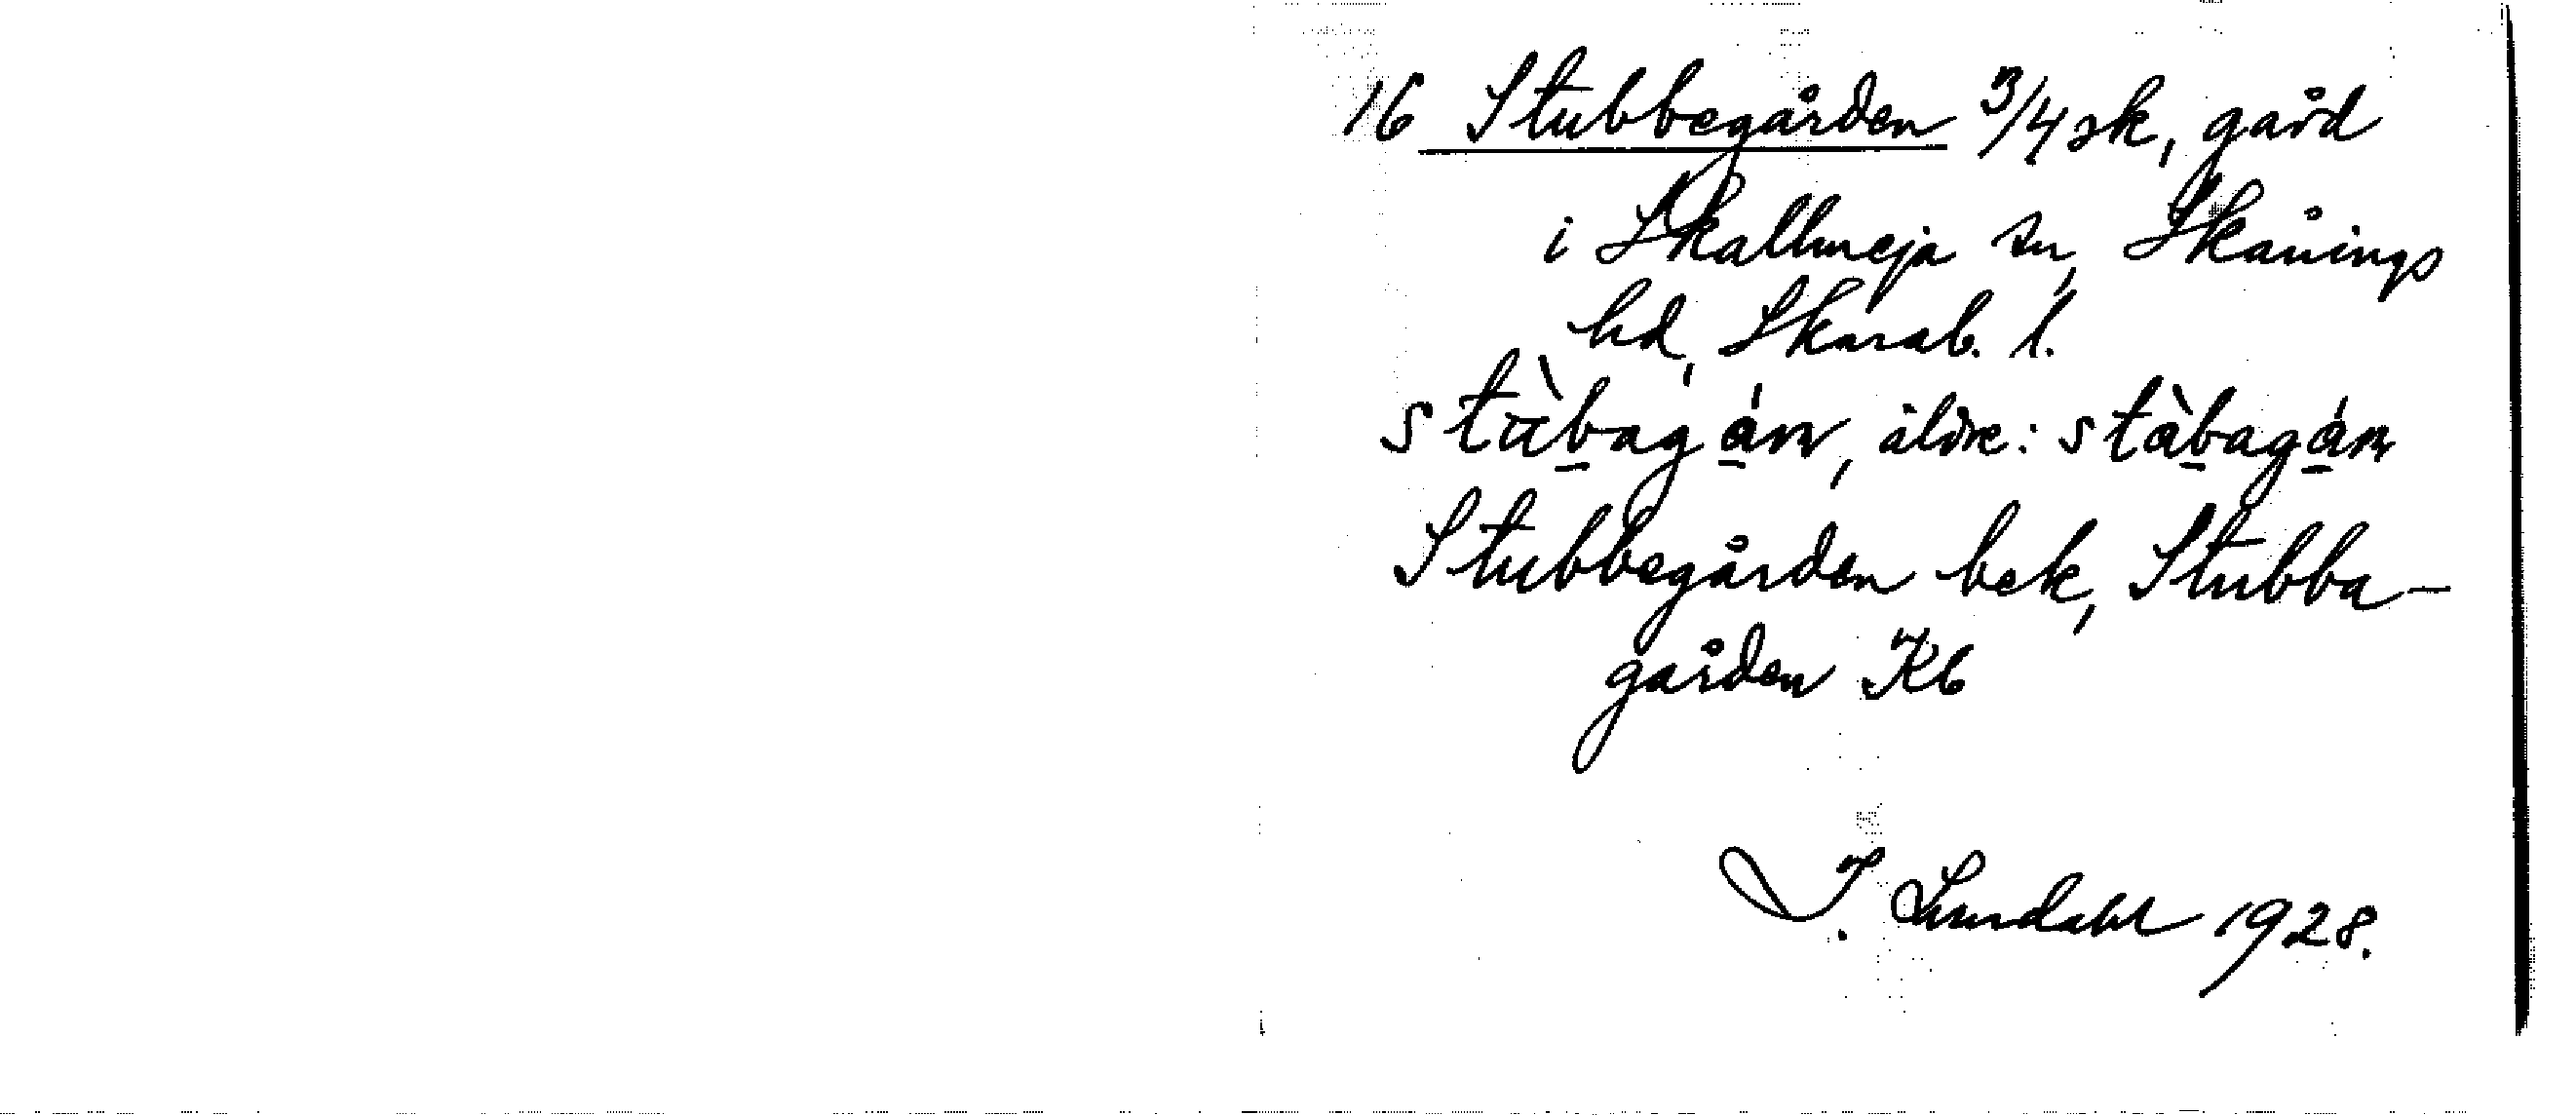 16 Stubbegården 3/4 sk, gård
i Skallmeja sn, Skånings
hd, Skarab. l.
äldre:
Stubbegården bek, Stubba-
gården Kb
I. Lundahl 1928.